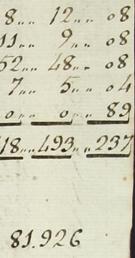 8‥ 12‥ 08
11‥ 9‥ 08
52‥ 48‥ 08
7‥ 5‥ 04
0‥ 0‥ 89
18‥ 493‥ 237
81.926